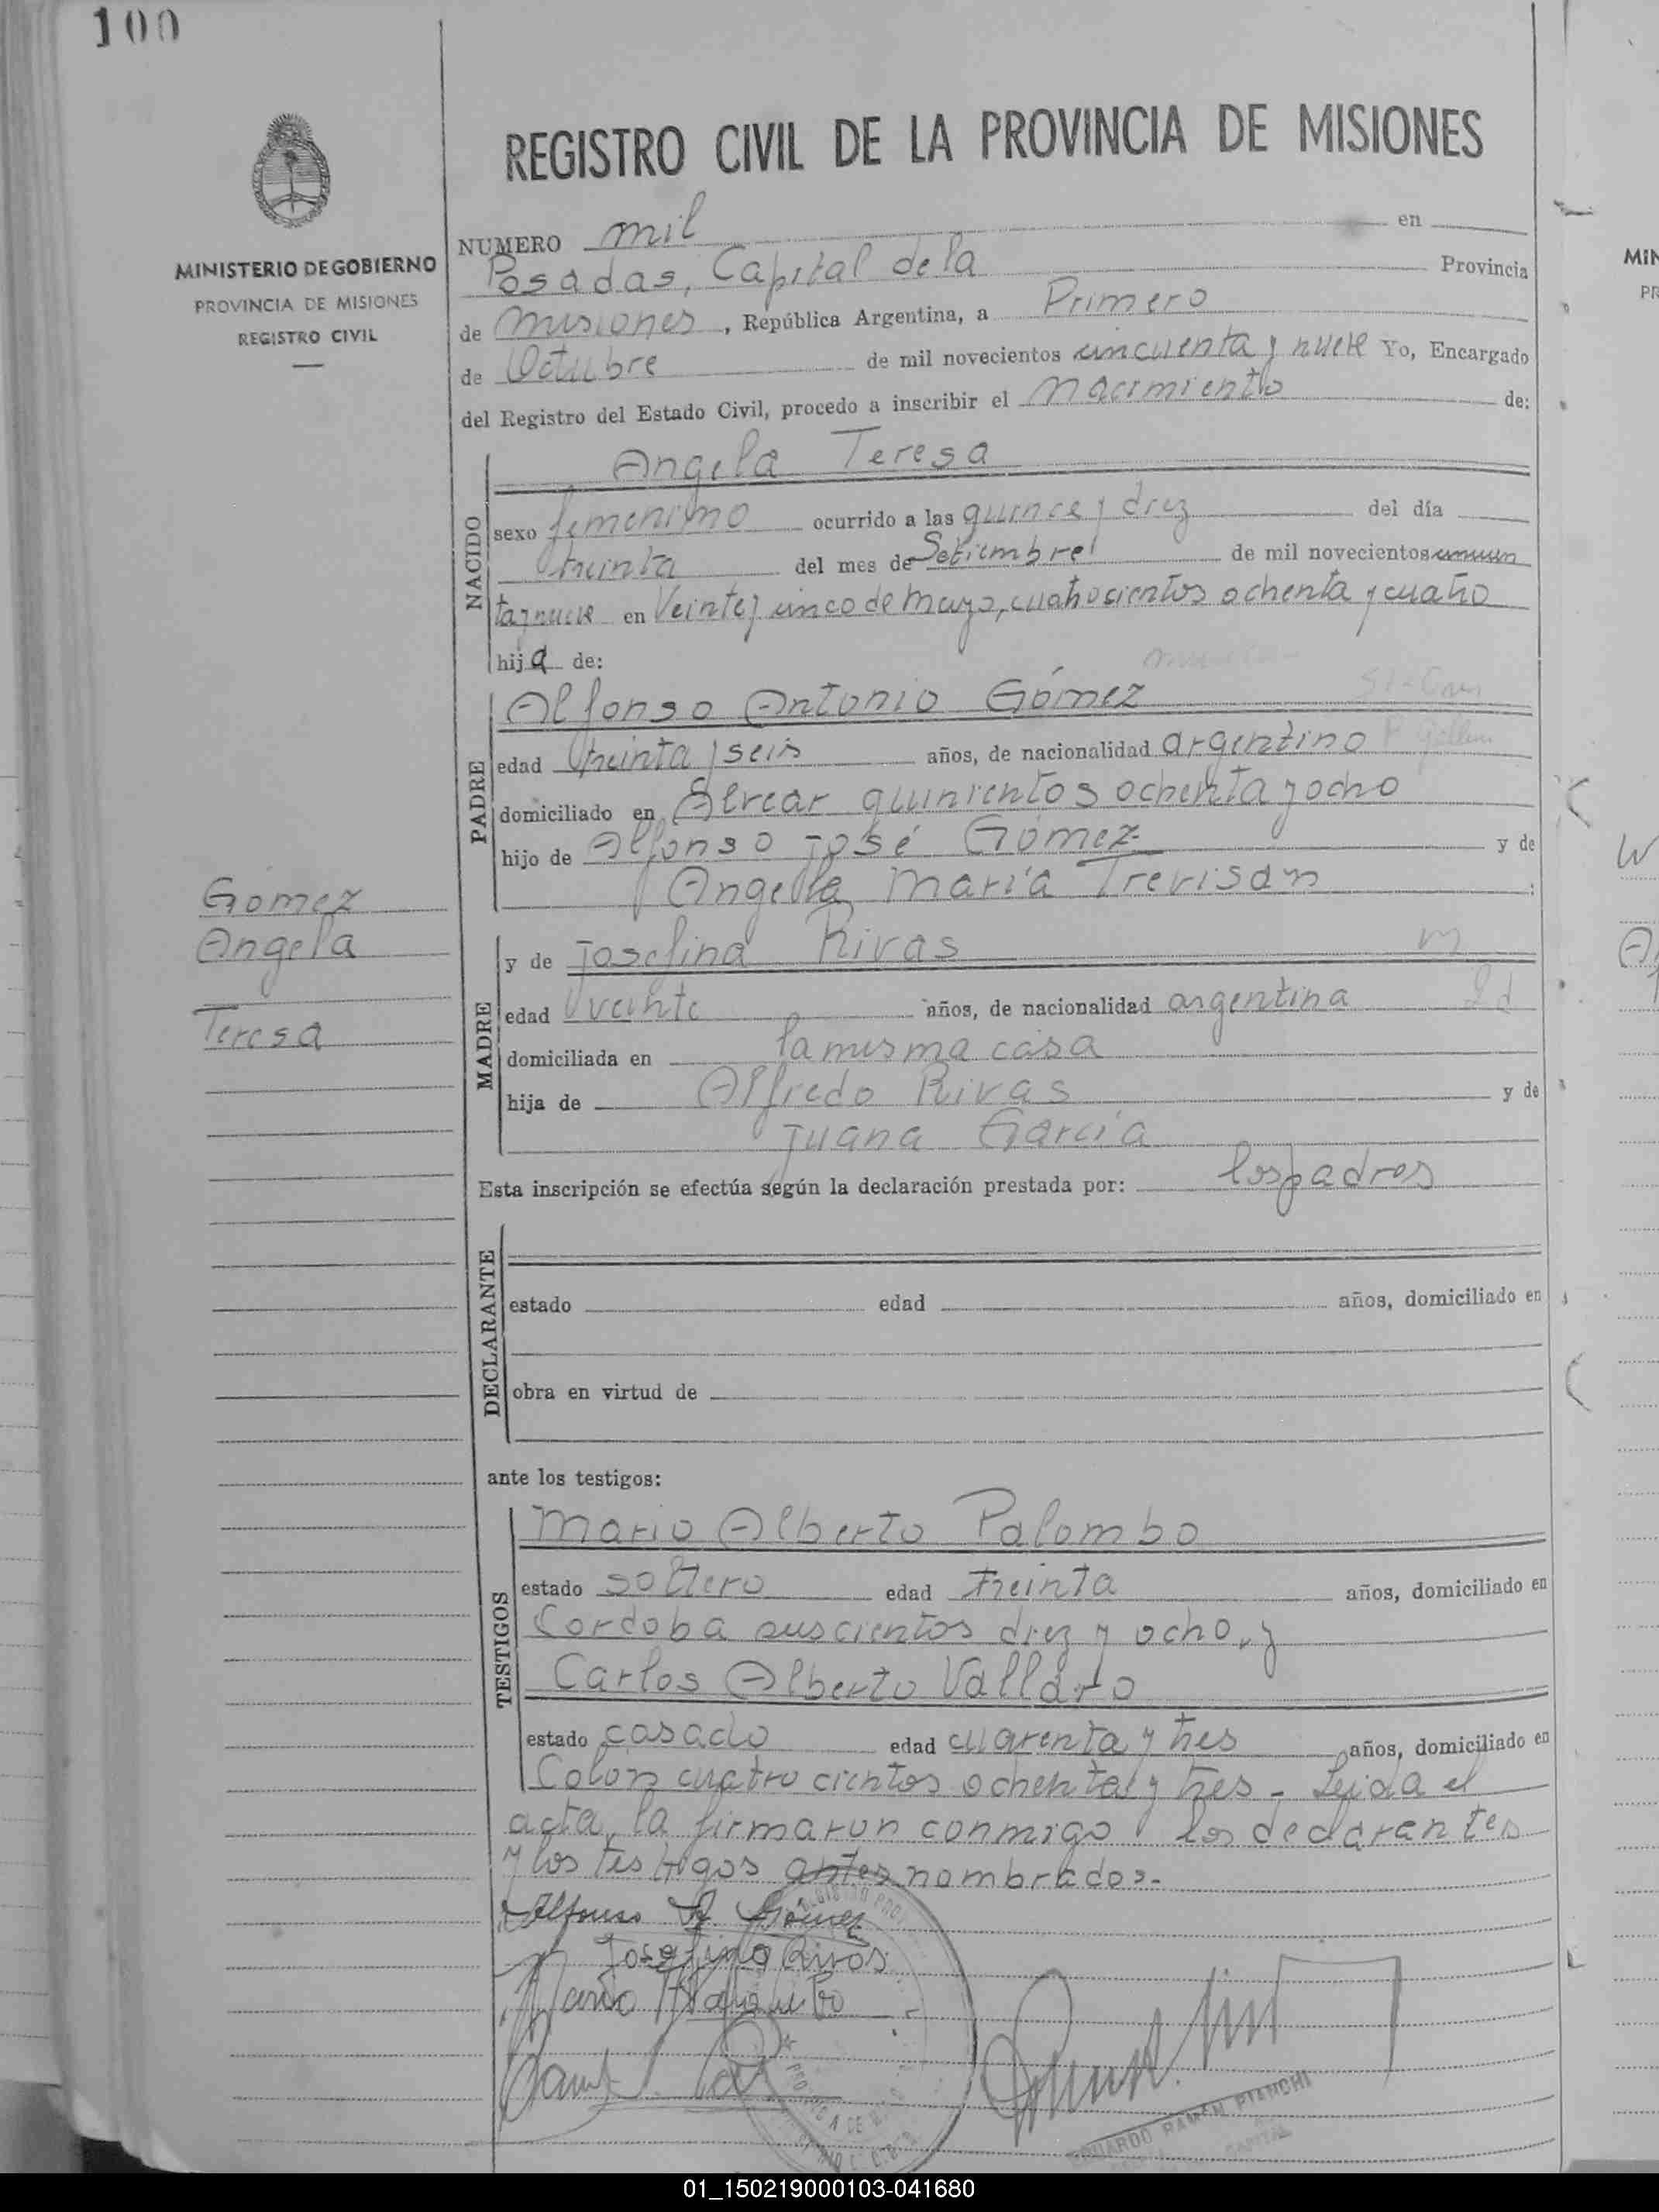 100
REGISTRO CIVIL DE LA PROVINCIA DE MISIONES
MINISTERIO DE GOBIERNO
PROVINCIA DE MISIONES
REGISTRO CIVIL
NUMERO mil en
Posadas, Capital de la Provincia
de Misiones, República Argentina, a Primero
de Octubre de mil novecientos cincuenta y nueve Yo, Encargado
del Registro del Estado Civil, procedo a inscribir el Nacimiento de:
NACIDO
Angela Teresa
sexo femenino ocurrido a las quince y diez del día
treinta del mes de Setiembre de mil novecientos cincuen
ta y nueve en Veinte y cinco de Mayo, cuatrocientos ochenta y cuatro
hija de:
PADRE
Alfonso Antonio Gómez
edad treinta y seis años, de nacionalidad argentino
domiciliado en Alvear quinientos ochenta y ocho
hijo de Alfonso José Gómez y de
Angela María Trevisan
Gomez
Angela
Teresa
MADRE
y de Josefina Rivas
edad veinte años, de nacionalidad argentina
domiciliada en la misma casa
hija de Alfredo Rivas y de
Juana García
Esta inscripción se efectúa según la declaración prestada por: los padres
DECLARANTE
estado edad años, domiciliado en
obra en virtud de
ante los testigos:
TESTIGOS
Mario Alberto Palombo
estado soltero edad treinta años, domiciliado en
Cordoba diez y ocho, y
Carlos Alberto Vallaro
estado casado edad cuarenta y tres años, domiciliado en
Colon cuatrocientos ochenta y tres - Leida el
acta, la firmaron conmigo los declarantes
y los testigos antes nombrados.-
Alfonso A. Gómez
Josefina Rivas
Mario A Palombo
EDUARDO RAMÓN BIANCHI
01_150219000103-041680